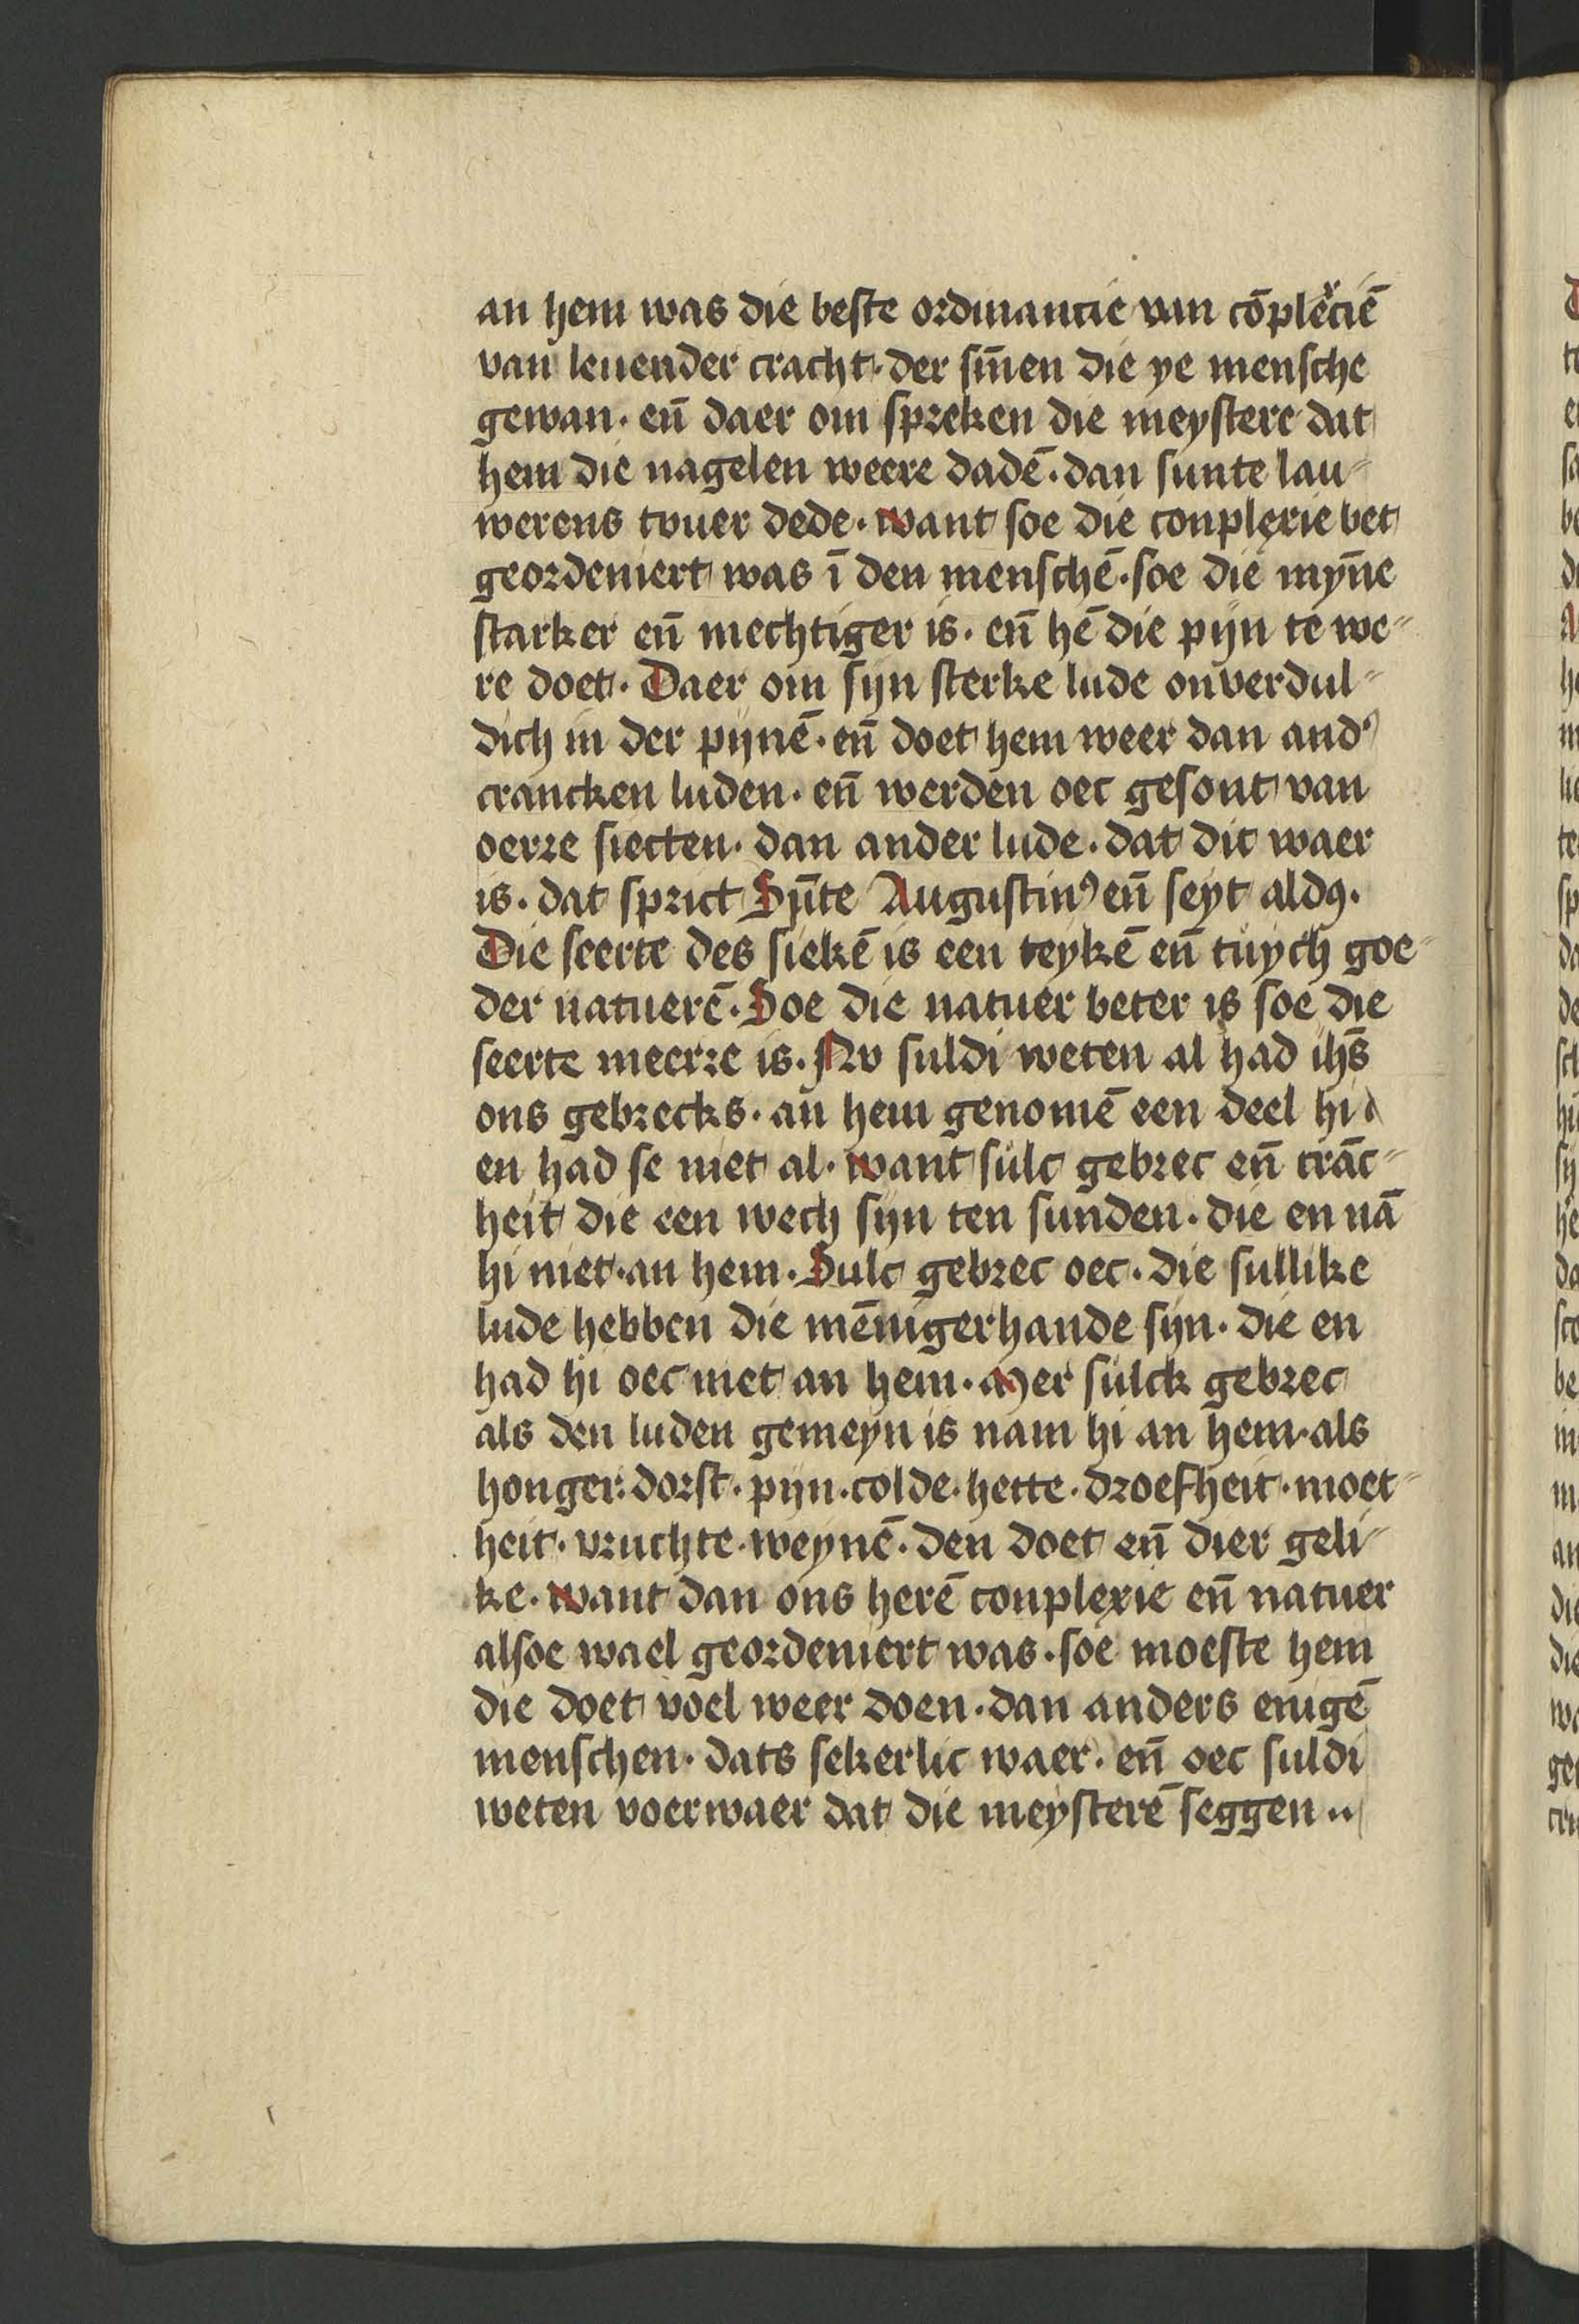 an hem was die beste ordinantie van cōplecxiē
van leuender cracht· der siñen die ye mensche
gewan· eñ daer om spreken die meystere dat
hem die nagelen weere dadē· dan sunte lau-
werens tvuer dede· want soe die conplexie bet
geordeniert was ī den menschē· soe die mÿne
starker eñ mechtiger is· eñ hē die pijn te we-
re doet· Daer om sijn sterke lude onverdul-
dich in der pijnē· eñ doet hem weer dan andʾ
crancken luden· eñ werden oec gesont van
oerre siecten· dan ander lude· dat dit waer
is· dat sprict Sūte Augustinꝰ eñ seyt aldꝰ·
Die seerte des siekē is een teykē eñ tuych goe-
der natuerē· Soe die natuer beter is soe die
seerte meerre is· Nv suldi weten al had ihs̄
ons gebrecks· an hem genomē een deel hi
en had se niet al· want sulc gebrec eñ crāc-
heit die een wech sijn ten sunden· die en nā
hi niet· an hem· Sulc gebrec oec· die sullike
lude hebben die mēnigerhande sijn· die en
had hi oec niet an hem· Mer sulck gebrec
als den luden gemeyn is nam hi an hem· als
honger· dorst· pijn· colde· hette· droefheit· moet-
heit· vruchte· weynē· den doet eñ dier geli-
ke· want dan ons herē conplexie eñ natuer
alsoe wael geordeniert was· soe moeste hem
die doet voel weer doen· dan anders enigē
menschen· dats sekerlic waer· eñ oec suldi
weten voerwaer dat die meysterē seggen··